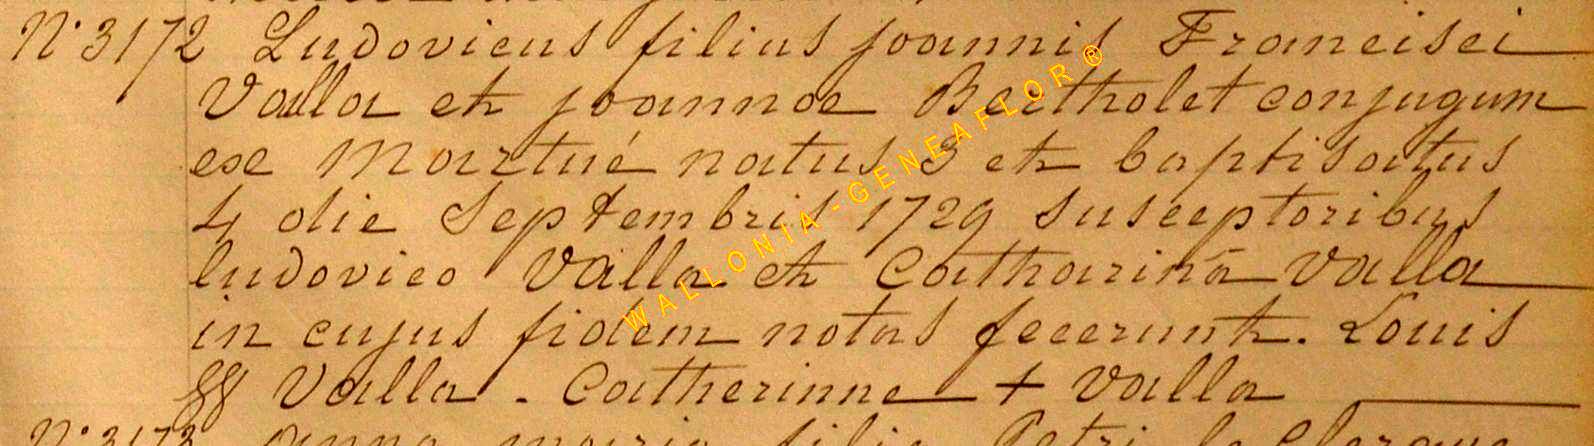 N° 3172 Ludovicus filius joannis Francisci
Valla et joannae Bertholet conjugum
ex Martué natus 3 et baptisatus
4 die Septembris 1729 susceptoribus
ludovico Valla et Catharinā Valla
in cujus fidem notas fecerunt. Louis
Valla - Catherinne + Valla
N° 3173 anna maria filia Petri le Clerque
WALLONIA-GENEAFLOR®